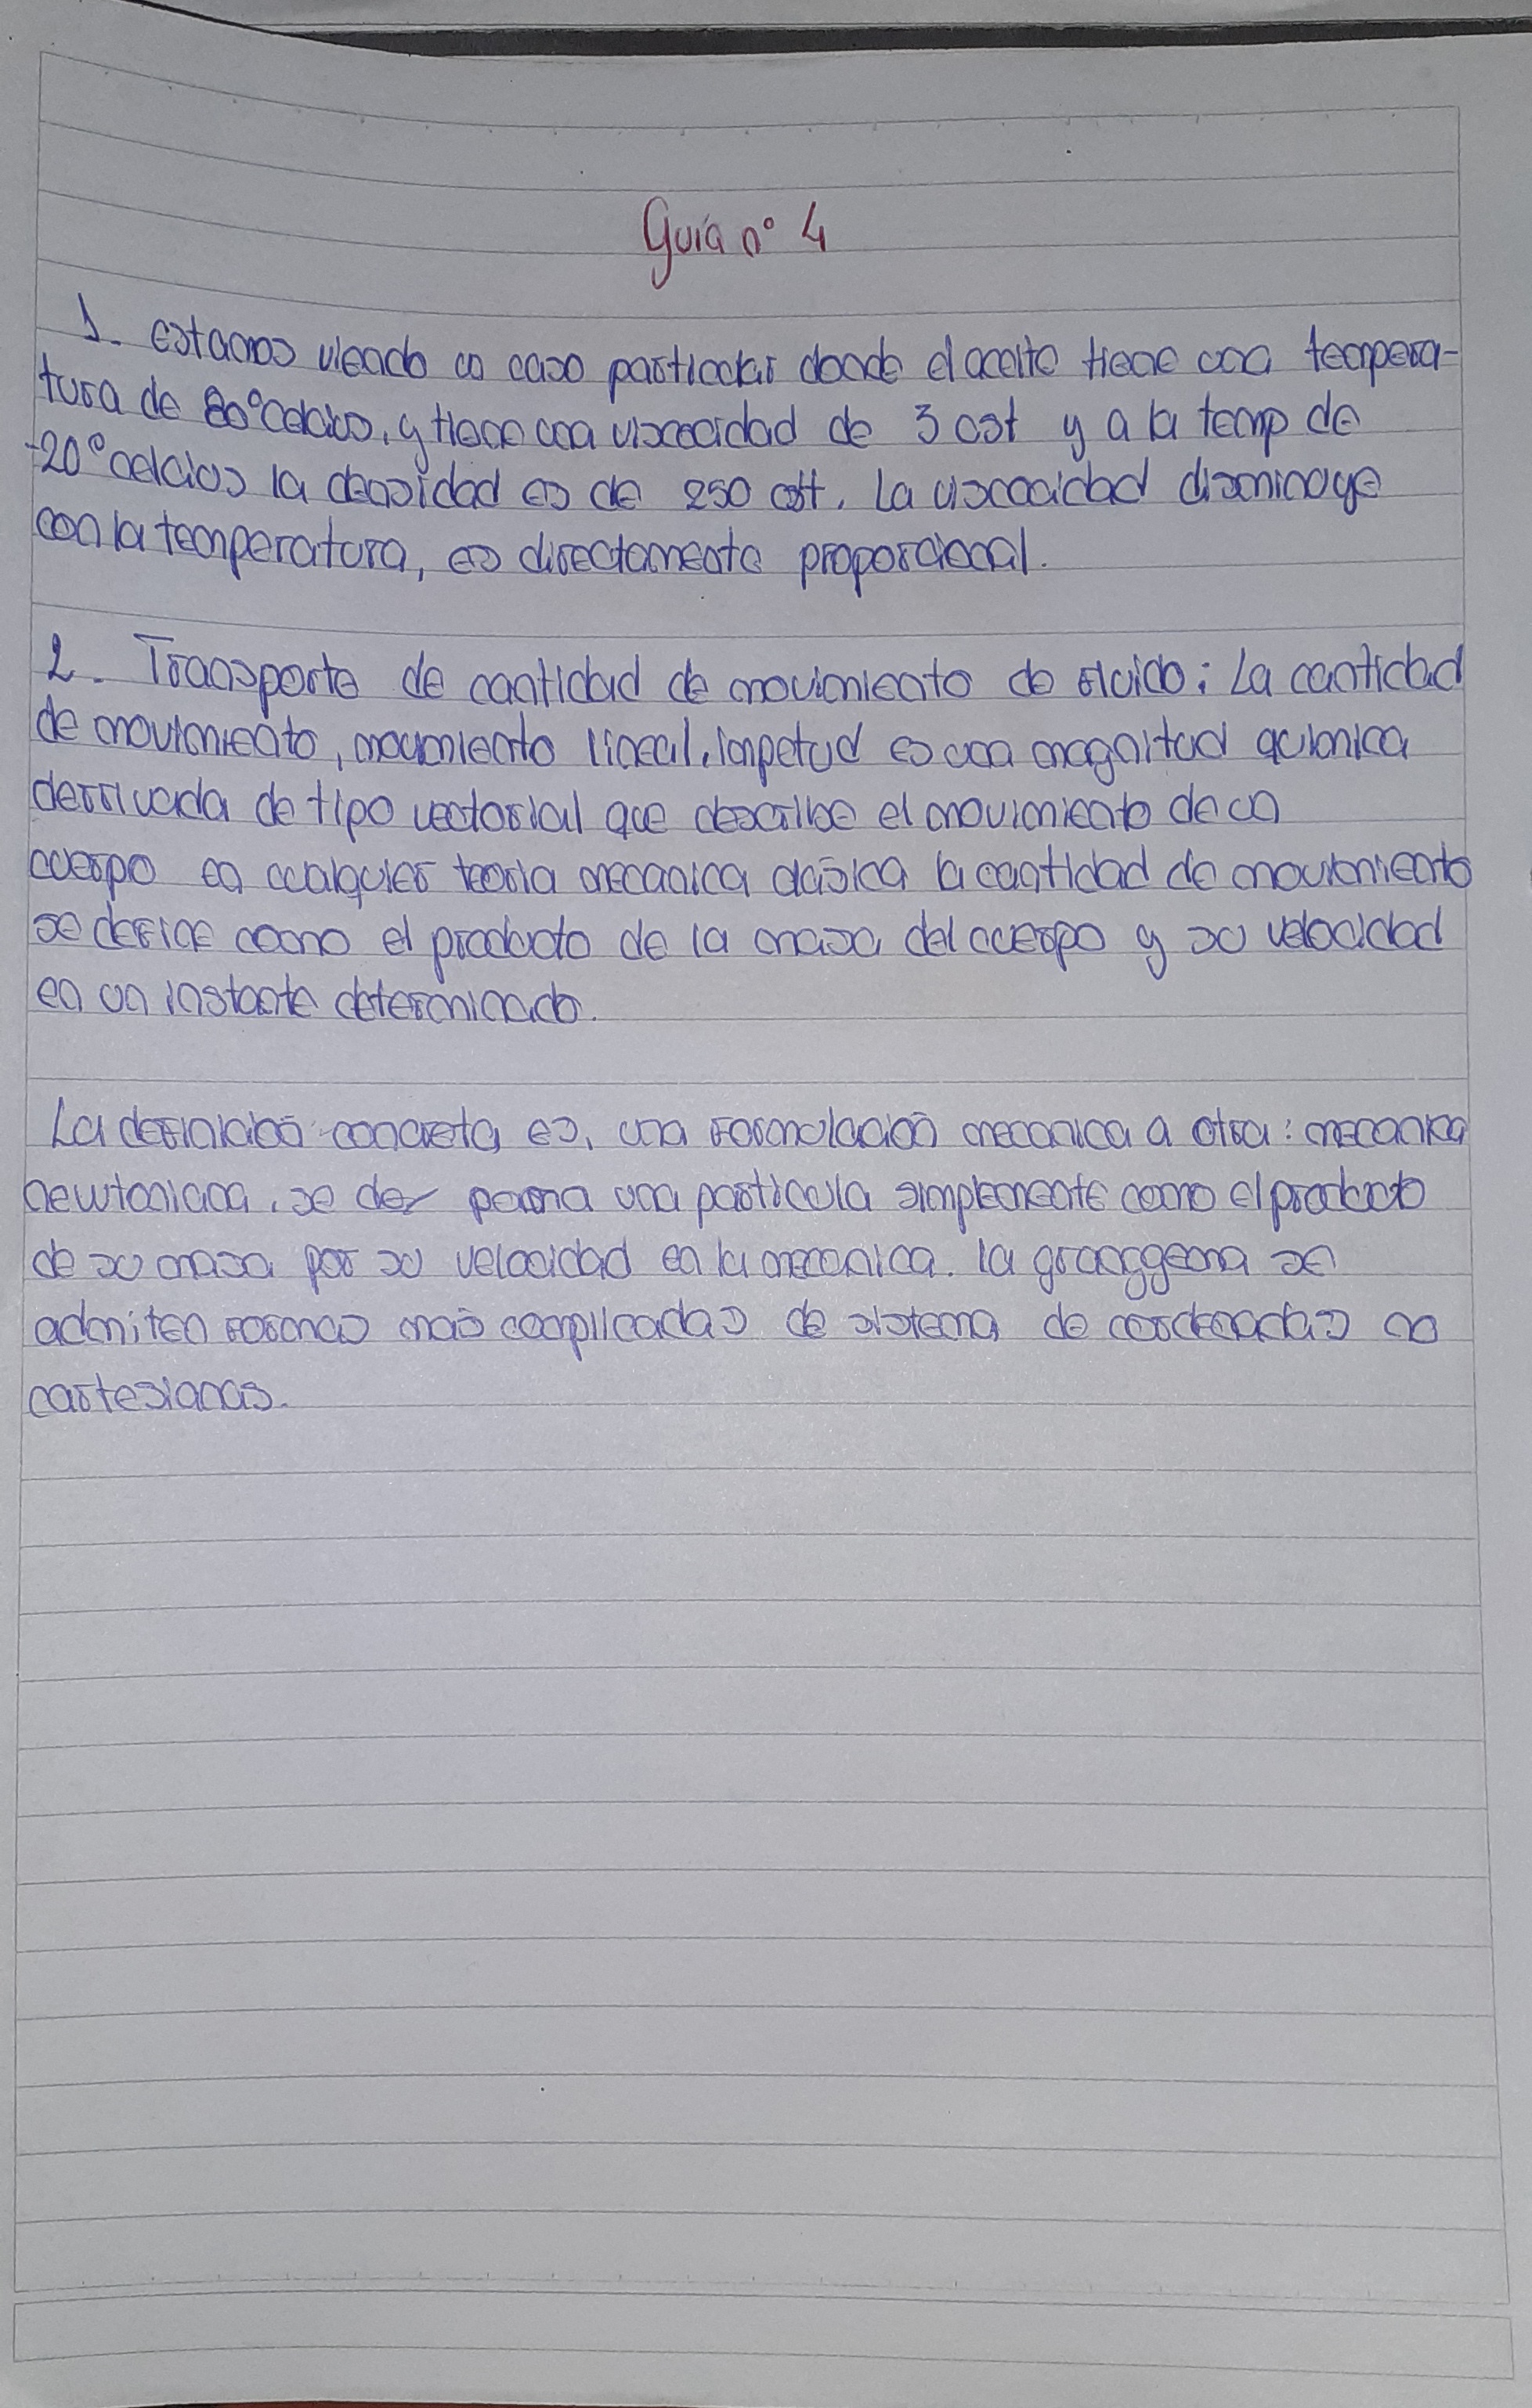 Guía n° 4
1. Estamos viendo un caso particular donde el aceite tiene una tempera-
tura de 80° celcius, y tiene una viscocidad de 3 cst y a la temp de
-20° celcios la densidad es de 250 cst. La viscocidad disminuye
con la temperatura, es directamente proporcional.
2. Transporte de cantidad de movimiento de fluido: La cantidad
de movimiento, movimiento lineal, impetud es una magnitud quimica
derrivada de tipo vectorial que describe el movimiento de un
cuerpo en cualquier teoria mecanica clásica la cantidad de movimiento
se define como el producto de la masa del cuerpo y su velocidad
en un instante determinado.
La definición concreta es, una formulación mecanica a otra: mecanica
newtoniana, se de una particula simplemente como el producto
de su masa por su velocidad en la mecanica. la granggeana se
admiten formas más complicadas de sistema de cordenadas no
cartesianas.